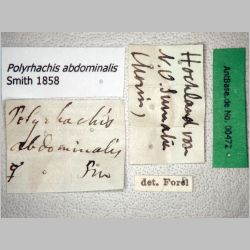 Polyrhachis abdominalis
Smith 1858
Polyrhachis
abdominalis
☿ Sm
Hochland von
N. O. Sumatra
(Morin)
det. Forel
AntBase.de No. 00472